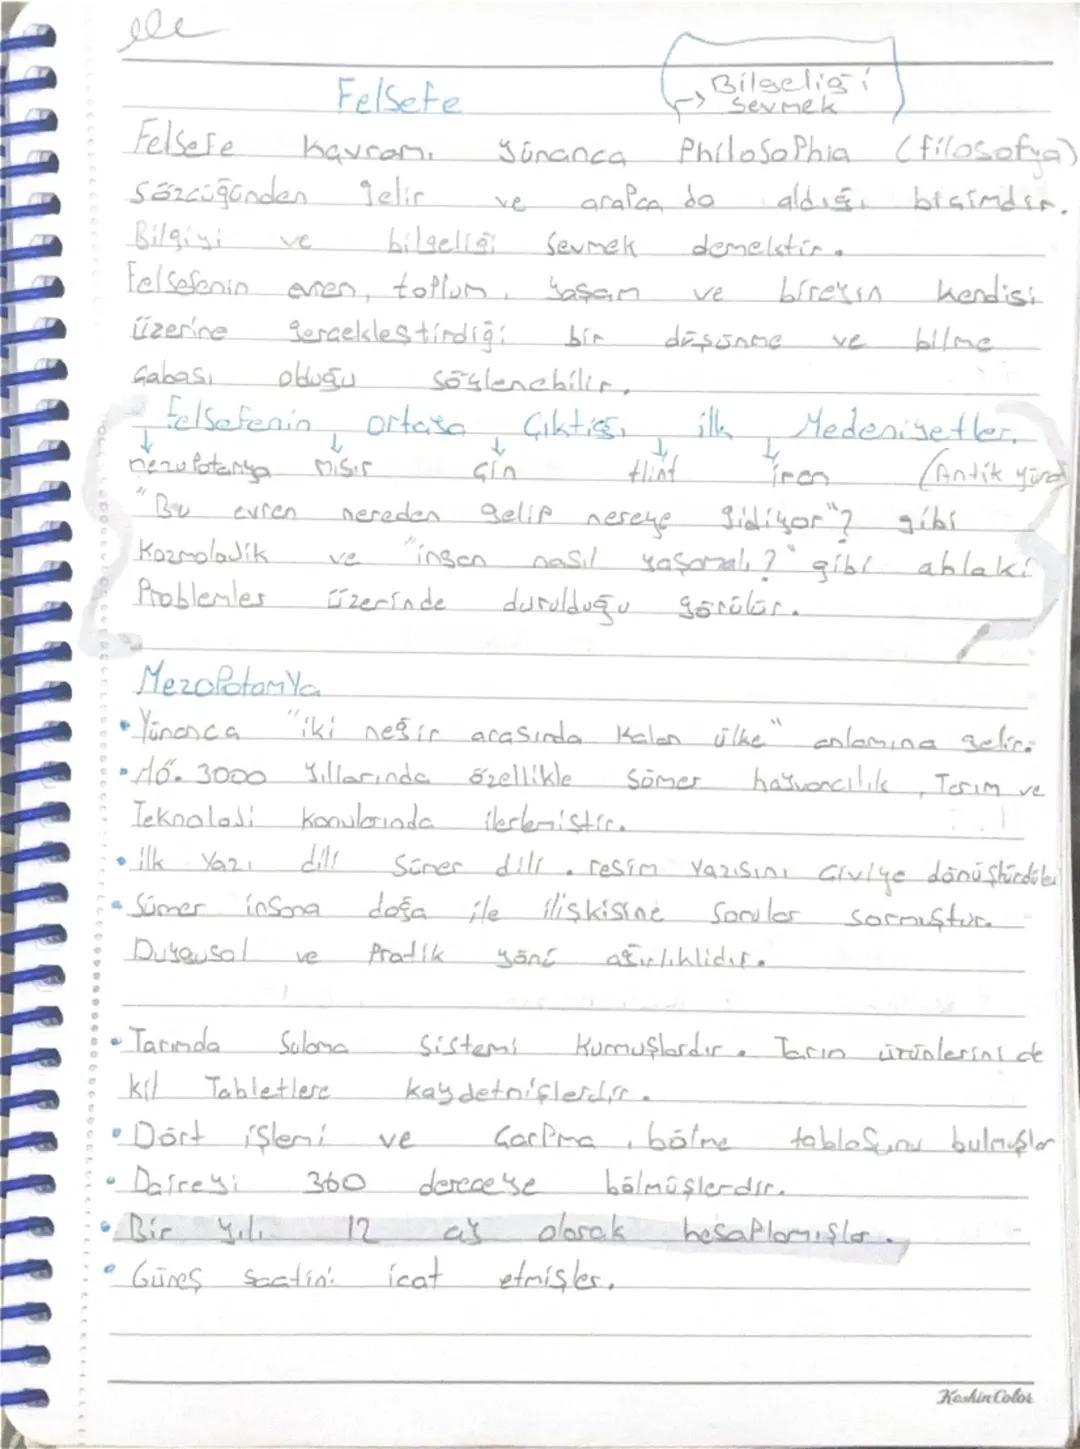 ele
Bilgeliği
→ Sevmek
Felsefe
Felsefe kavramı yunanca Philosophia (filosofya)
Sözcüğünden gelir ve arapca da aldığı biçimdir.
Bilgiyi ve bilgeliği Sevmek demektir.
Felsefenin evren, toplum, yaşam ve bireyin kendisi
üzerine gerçekleştirdiği bir düşünme ve bilme
çabası olduğu söylenebilir.
Felsefenin ortaya Çıktığı ilk Medeniyetler.
mezopotamya mısır çin Hint iran (Antik yünan
"Bu evren nereden gelip nereye gidiyor"? gibi
Kozmolojik ve "insan nasıl yaşamalı?" gibi ahlaki
Problemler üzerinde durulduğu görülür.
Mezopotamya
• Yünanca "iki nehir arasında Kalan ülke" anlamına gelir.
• MÖ. 3000 yıllarında özellikle Sümer hayvancılık, Tarım ve
Teknoloji konularında ilerlemiştir.
• ilk Yazı dili Sümer dili. resim Yazısını Çiviye dönüştürdüler
• Sümer insana doğa ile ilişkisine Sorular sormuştur.
Duygusal ve Pratik yönü ağırlıklıdır.
• Tarımda Sulama Sistemi Kurmuşlardır. Tarım ürünlerini de
kil Tabletlere kaydetmişlerdir.
• Dört işlemi ve Çarpma, bölme tablosunu bulmuşlar
• Daireyi 360 dereceye bölmüşlerdir.
• Bir yılı 12 ay olarak hesaplamışlar.
• Güneş saatini icat etmişler.
Keskin Color